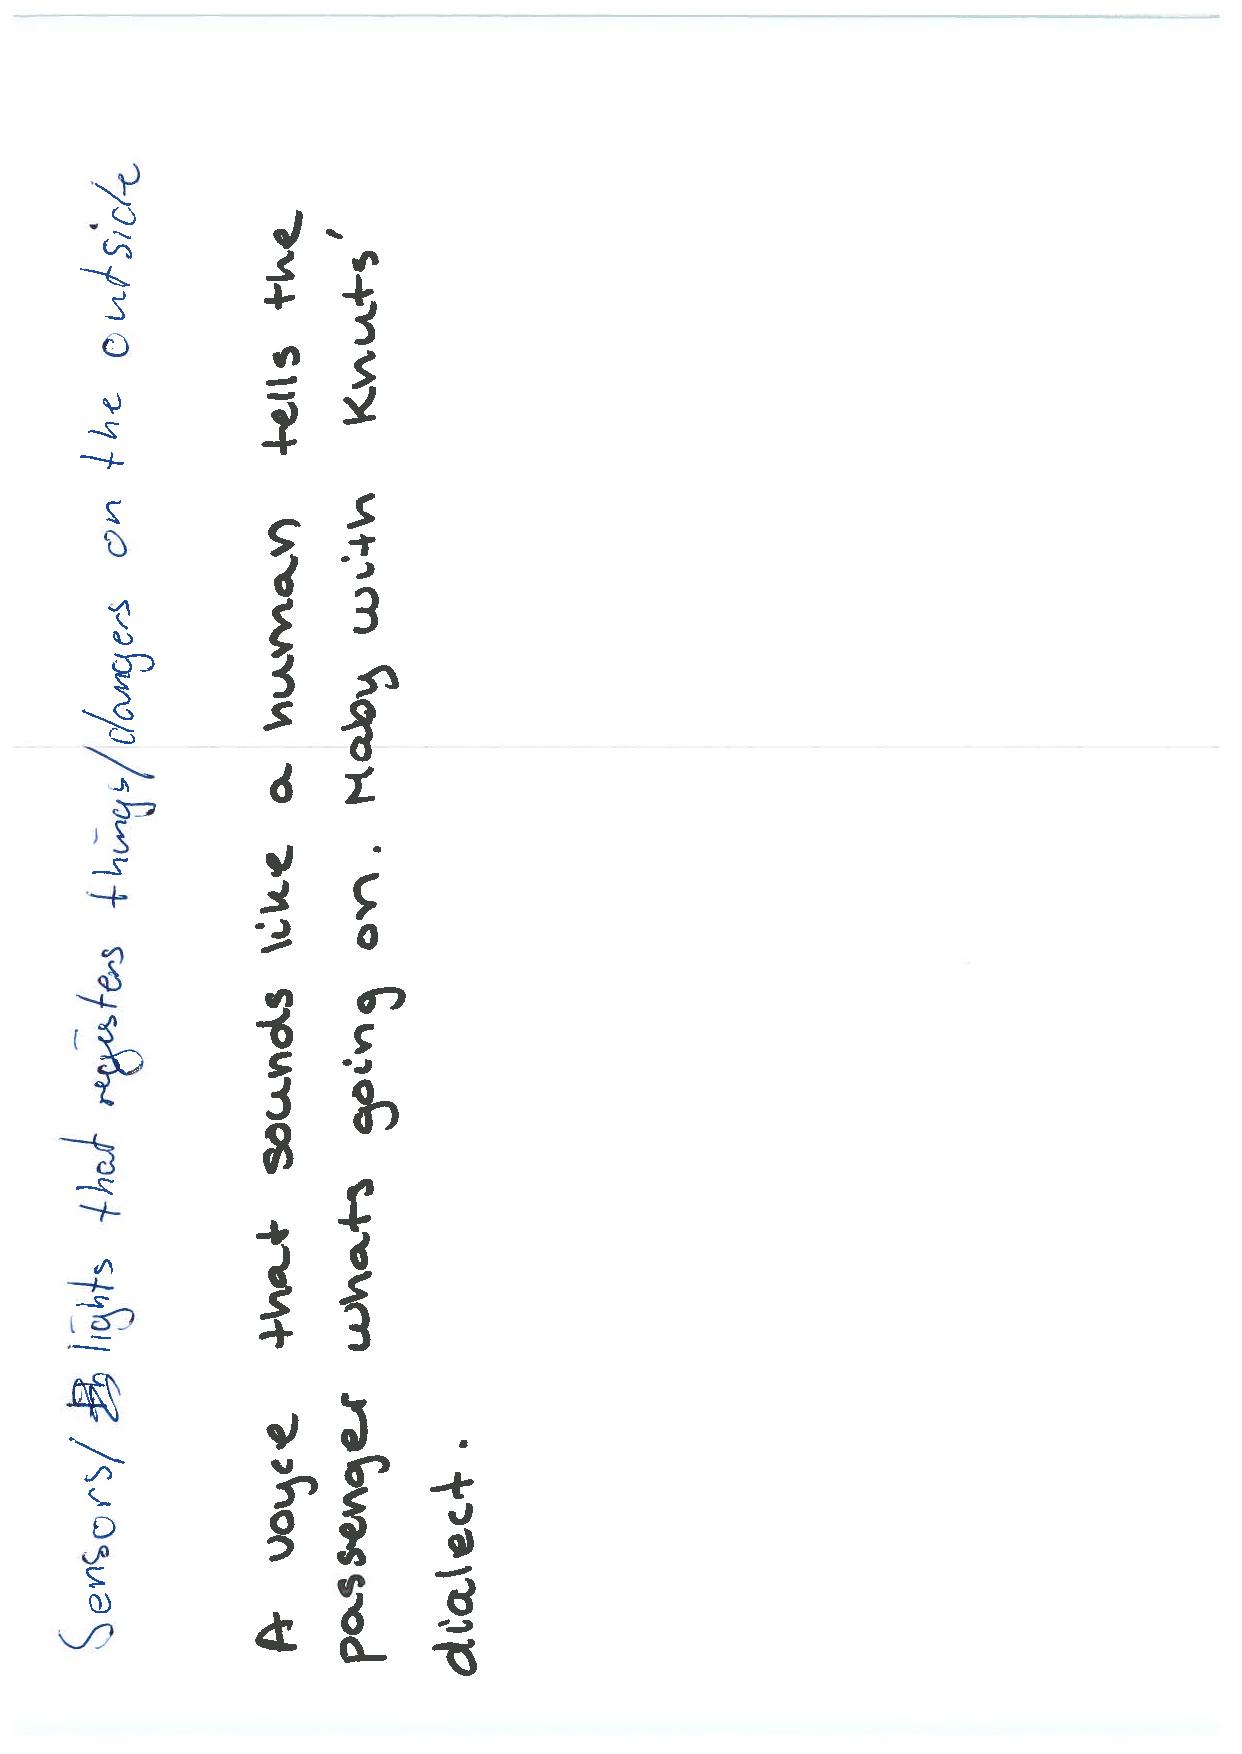 Sensors/ lights that registers things/dangers on the outside
A voyce that sounds like a human tells the
passenger whats going on. Maby with Knuts'
dialect.